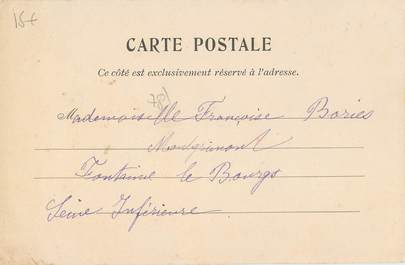 15+
CARTE POSTALE
Ce côté est exclusivement réservé à l'adresse.
Mademoiselle Françoise Bories
Montgrimont
Fontaine le Bourg
Seine Inférieure